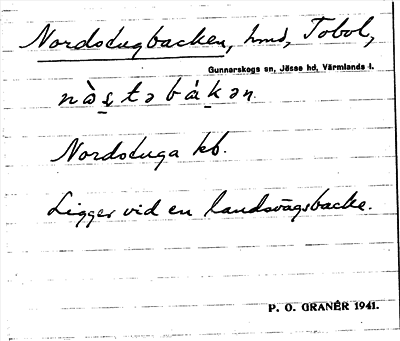 Nordstugbacken, hmd, Tobol,
Gunnarskogs sn, Jösse hd, Värmlands l.
nàs̱tə báḵən.
Nordstuga kb.
Ligger vid en landsvägsbacke.
P. O. GRANÉR 1941.